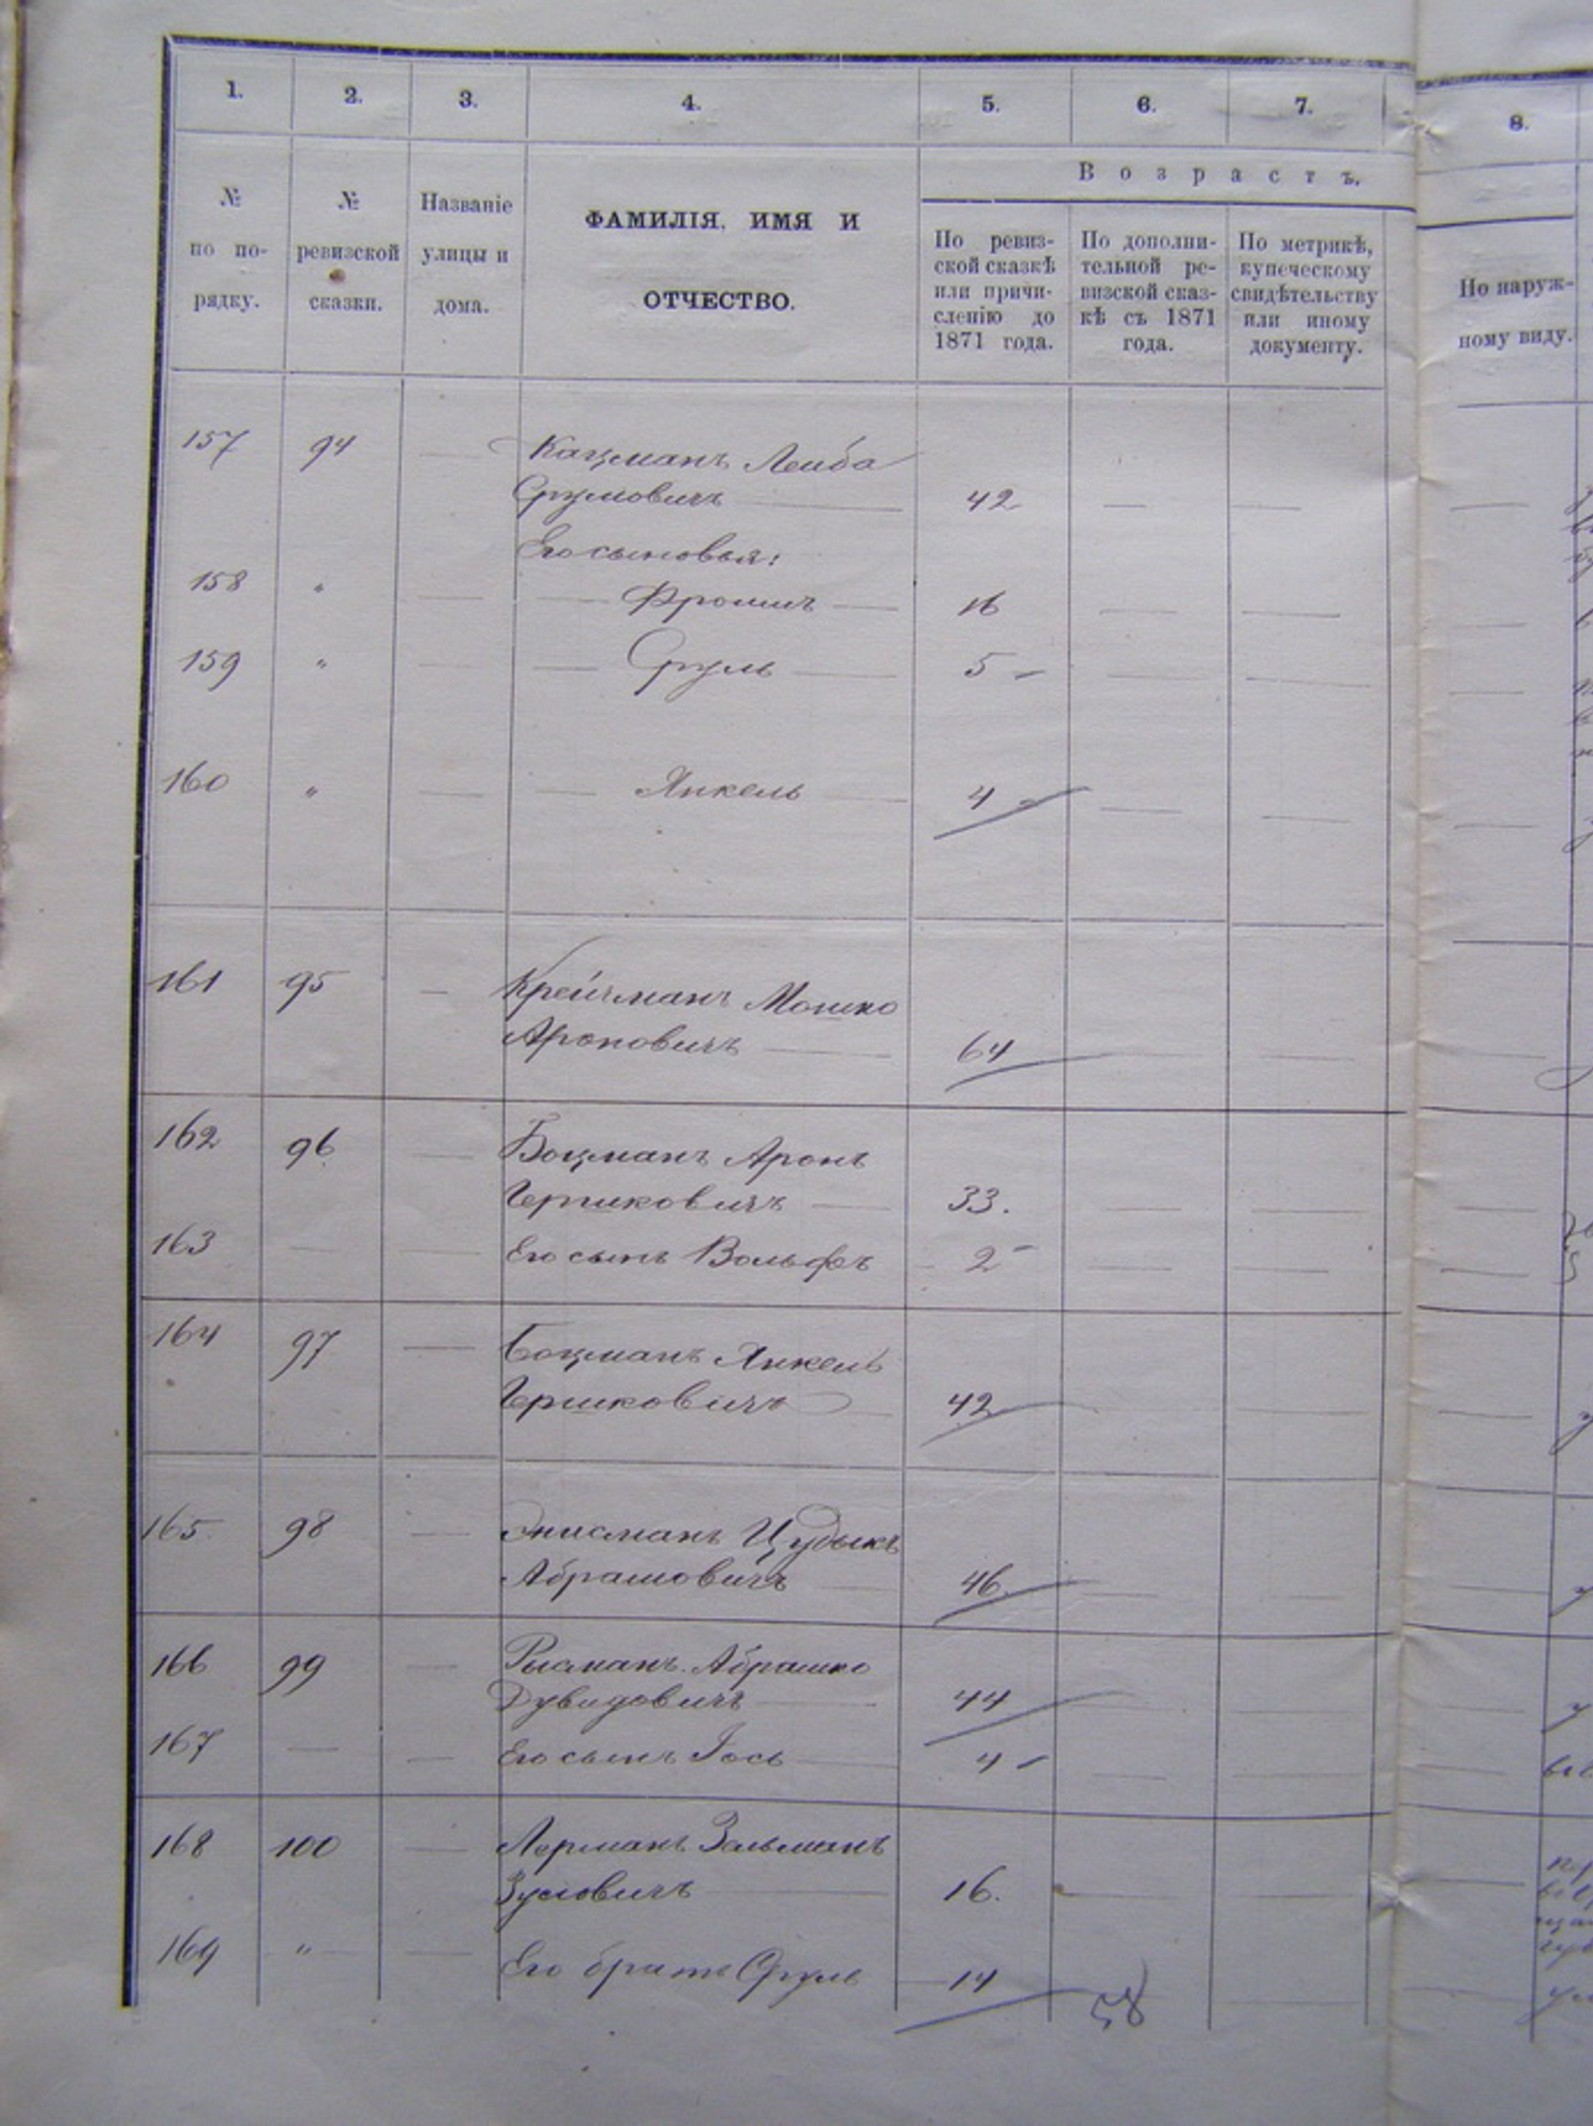 1. 2. 3. 4. 5. 6. 7. 8.
Возрастъ.
№ по порядку.
№ ревизской сказки.
Названіе улицы и дома.
ФАМИЛІЯ, ИМЯ И ОТЧЕСТВО.
По ревиз-
ской сказкѣ
или причи-
сленію до
1871 года.
По дополни-
тельной ре-
визской сказ-
кѣ съ 1871
года.
По метрикѣ,
купеческому
свидѣтельству
или иному
документу.
По наруж-
ному виду.
157 94 — Кацманъ Лейба
Срулювичъ — 42 — — —
Его сыновья:
158 " — — Фроимъ — 16 — — —
159 " — — Сруль — 5 — — — —
160 " — — Янкель — 4 — — — —
161 95 — Крейчманъ Мошко
Ароновичъ — 64 — — —
162 96 — Боцманъ Аронъ
Гершковичъ — 33. — — —
163 — — Его сынъ Вольфъ — 2 — — — —
164 97 — Боцманъ Янкель
Гершковичъ — 42 — — —
165 98 — Цудыкъ
Абрамовичъ — 46 — — —
166 99 — Рысманъ Абрашко
Дувидовичъ — 44 — — —
167 — — Его сынъ Іось — 4 — — — —
168 100 — Лерманъ Зальманъ
Зусіовичъ — 16. — — —
169 " — Его братъ Сруль — 14 — — —
58